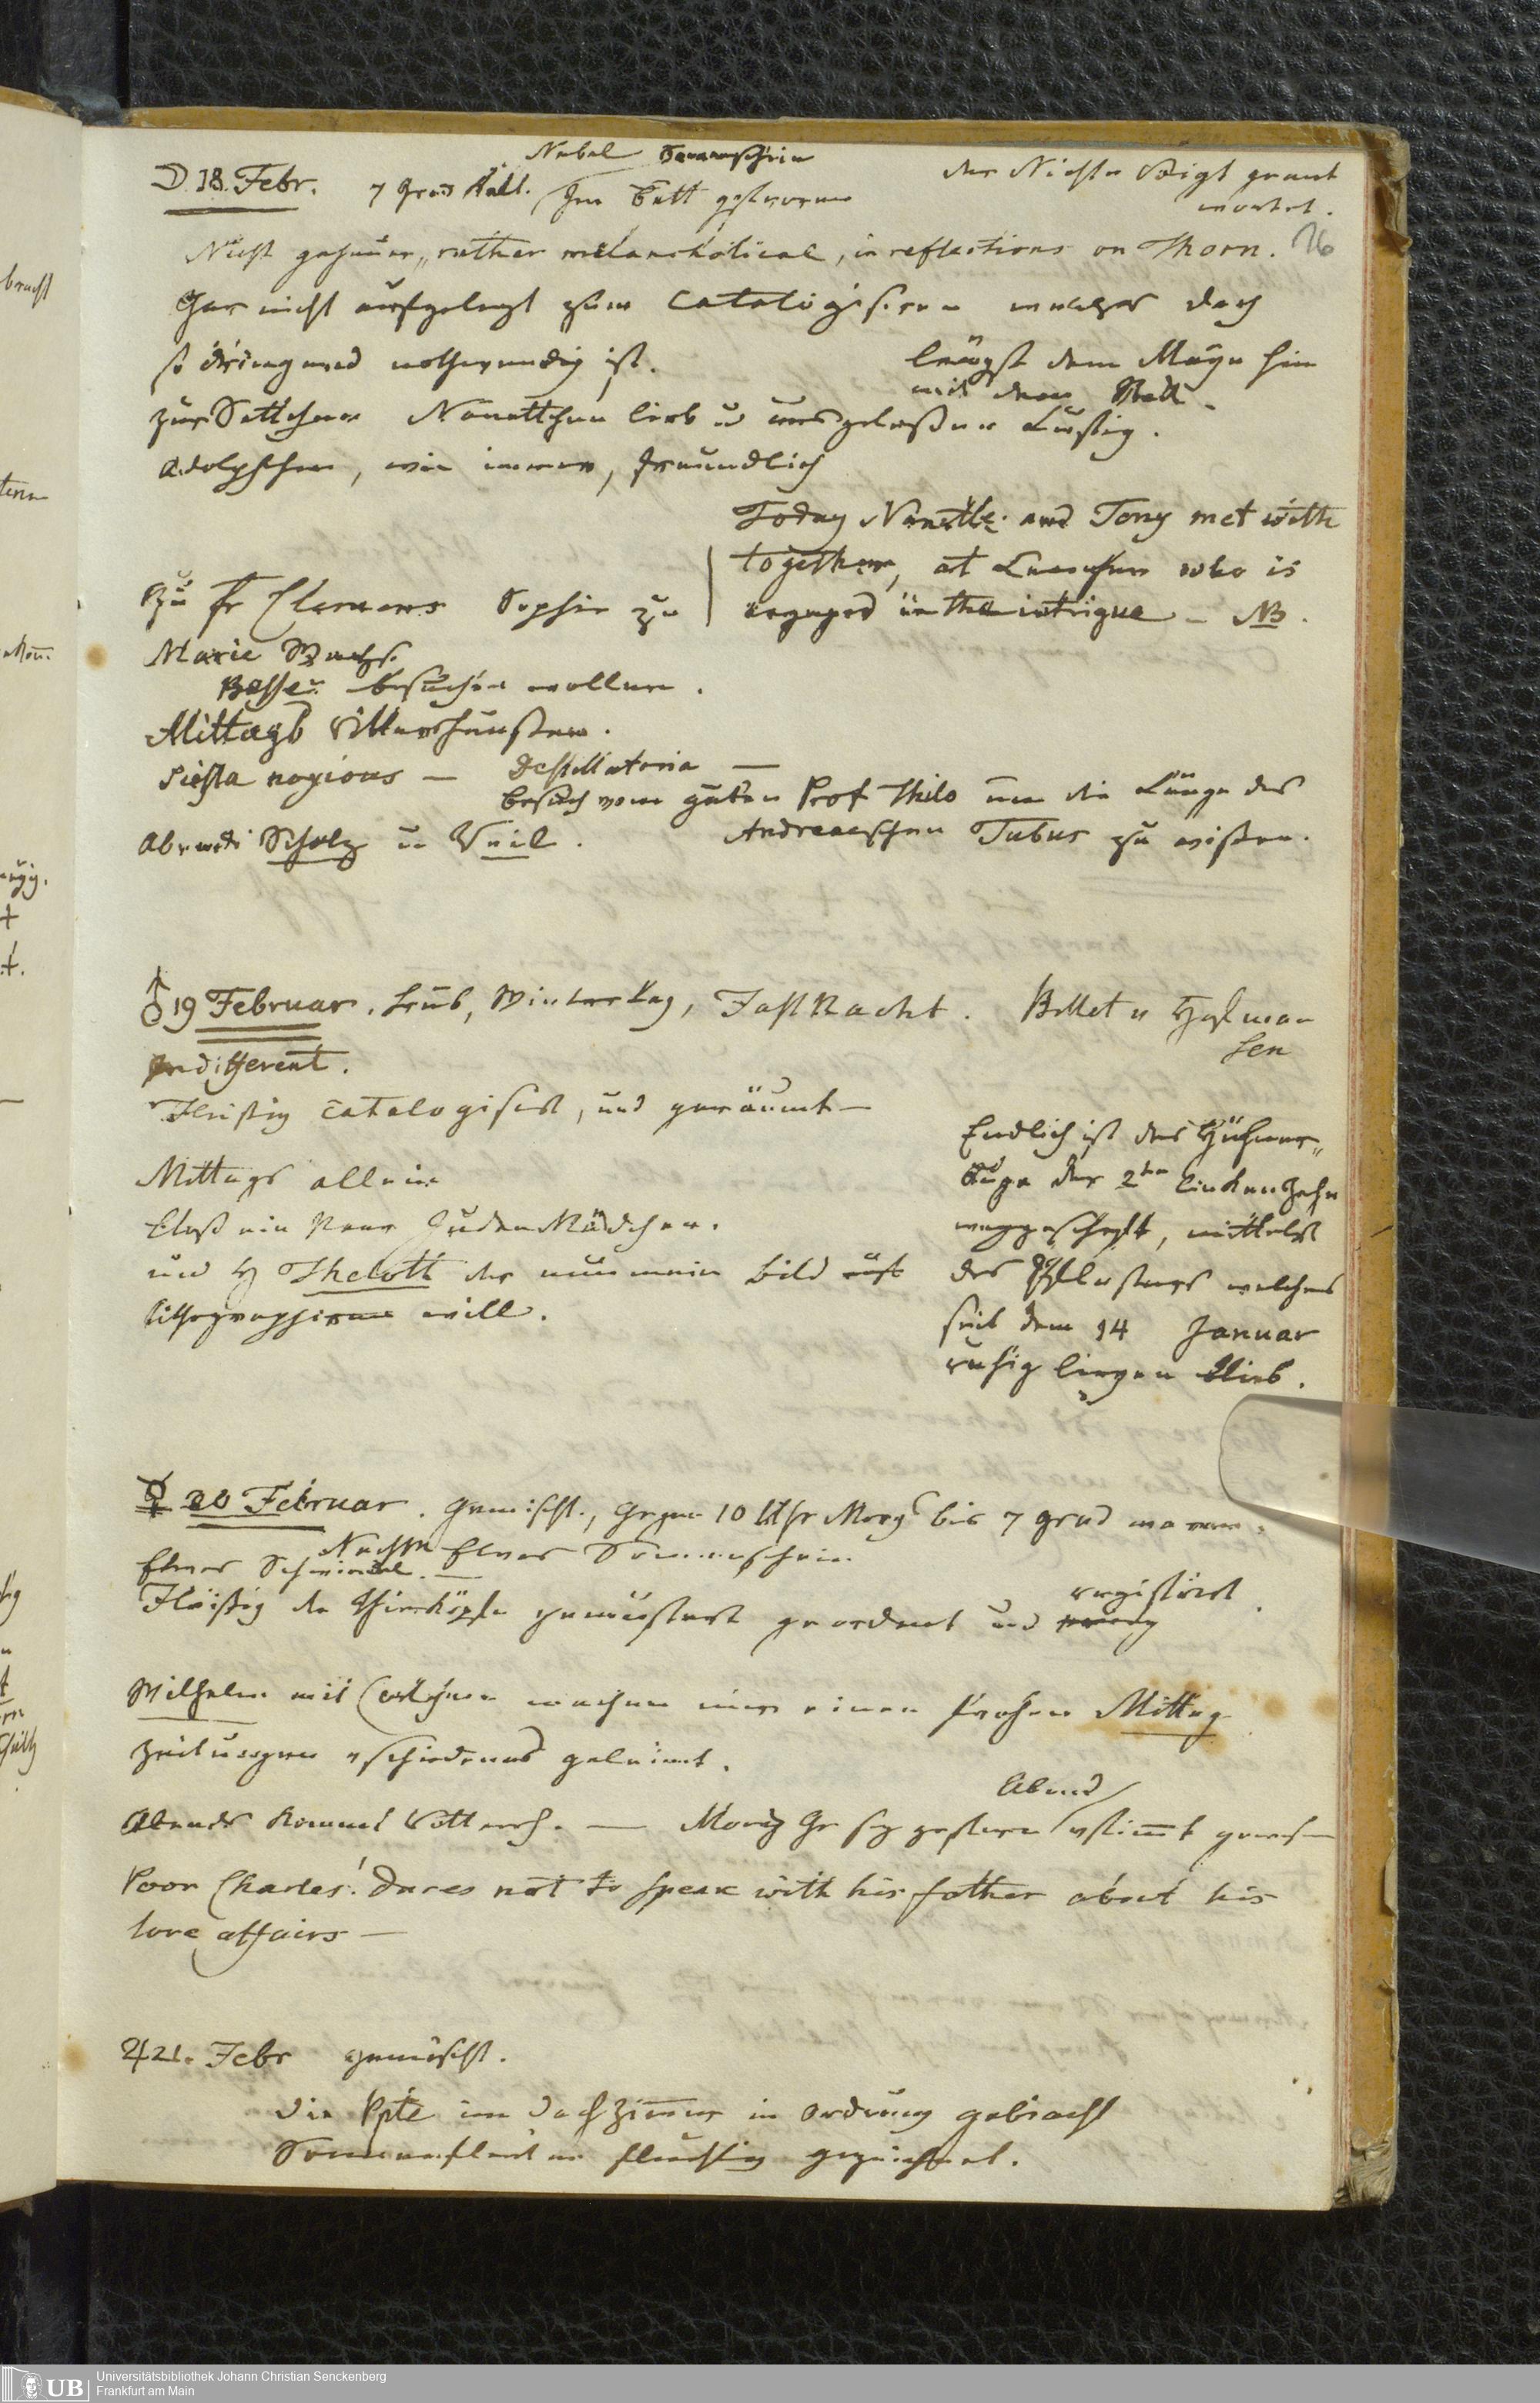 Nebel Sonnenschein
☽ 18. Febr. 7 Grad Kält. Im Bett gefroren
der Nichte Voigt geant
wortet.
76
Nicht geheuer, rather melancholical, in reflections on Thorn.
Gar nicht aufgelegt zum Catalogisiren welches doch
so dringend nothwendig ist.
längst dem Mayn hin
mit dem
zur Settchen Nanettchen lieb u ausgelaßen Lustig.
Adolphchen, wie immer, freundlich
Today Nanette and Tony met with
together, at Luenchen who is
engaged in the intrigue – NB.
Zu Fr Clemens Sophie zu
Marie
besuchen wollen.
Mittags Villershausen.
Siesta noxious — Destillatoria —
Besuch vom guten Prof Thilo um die Länge des
Andreaeschen Tubus zu wißen.
Abends Scholz u Veil.
♂ 19 Februar. trüb, Wintertag, Fastnacht. Billet v Heßman
sen
Indifferent.
Fleißig Catalogisirt, und geräumt —
Mittags allein
Bloß ein Paar Juden Mädchen.
und H Thelott der nun mein Bild
lithographiren will.
Endlich ist das Hühner„
Auge der 2ten linken Zehe
weggeschafft, mittelst
des Pflasters welches
seit dem 14 Januar
ruhig liegen blieb.
☿ 20 Februar. gemischt, gegen 10 Uhr Morgs bis 7 grad warm.
Nachm Etwas Sonnenschein
Etwas Schwindel. —
Fleißig die Thierköpfe gemustert geordnet und registrirt.
Wilhelm mit machen mir einen frohen Mittag
Zeitungen verschiedenes geleimt.
Abends kommt Villersh. — Moriz Gr sey gestern Abend verstimmt gewesen
Poor Charles! dares not to speak with his father about his
love affairs —
♃ 21. Febr gemischt.
Die Ppte im Dachzimer in Ordnung gebracht
Sonnenflecken flüchtig gezeichnet.
UB
Universitätsbibliothek Johann Christian Senckenberg
Frankfurt am Main